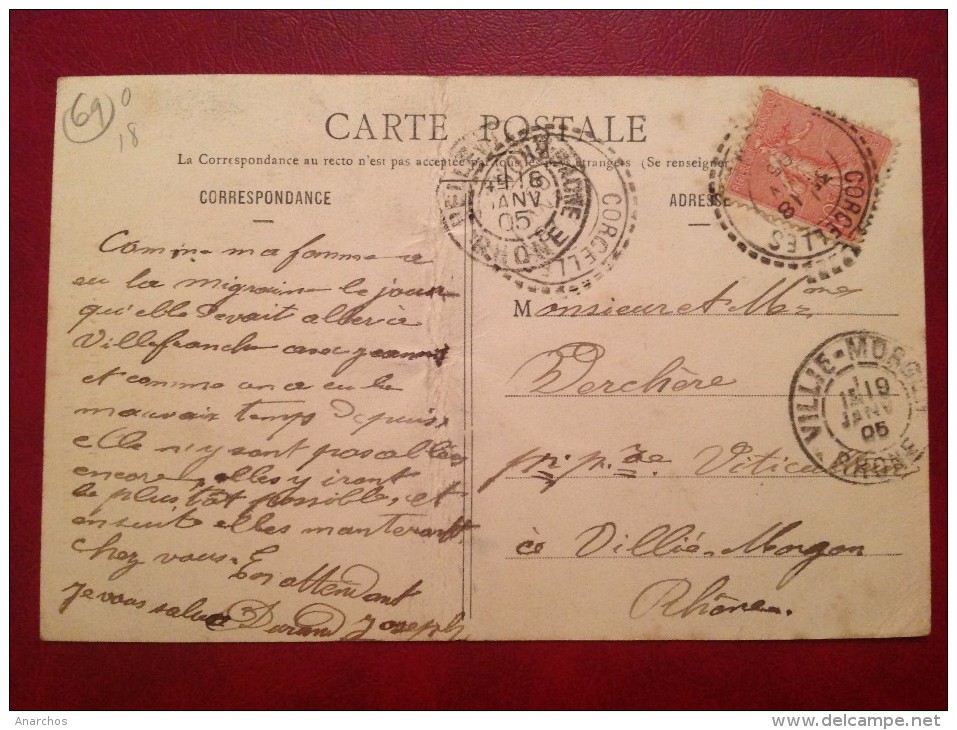 69 0
18
CARTE POSTALE
La Correspondance au recto n'est pas acceptée par tous les pays étrangers (Se renseigner
CORRESPONDANCE
ADRESSE
Comme ma famme a
eu la migraine le jour
qu'elle devait aller à
Villefranche
et comme on a eu le
mauvais temps depuis,
elle n'y sont pas allés
encore, elles y iront
le plus tôt possible, et
ensuite elles monteront
chez vous. En attendant
je vous salue Durand Joseph
Monsieur et Mme
Perchère
Viticulteur
à Villié-Morgon
Rhône.
CORCELLES
18
BELLEVILLE-S-SAÔNE
18
JANV
05
RHONE
CORCELLES
VILLIÉ-MORGON
19
JANV
05
RHONE
Anarchos
www.delcampe.net